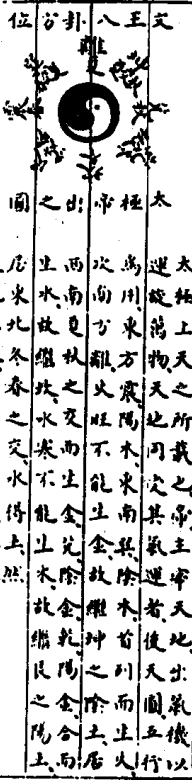 文王八卦方位
離
太極帝出之圖
太極上天之所載之帝主宰天地出氣機以
運旋萬物天地同定其氣運者後天圖五行
為用東方震陽木東南巽陰木首列而生火
次南方離火旺不能生金故繼坤之陰土居
西南夏秋之交而生金兌陰金乾陽金合而
生水故繼坎水寒不能生木故繼艮之陽土
居東北冬春之交水得土然